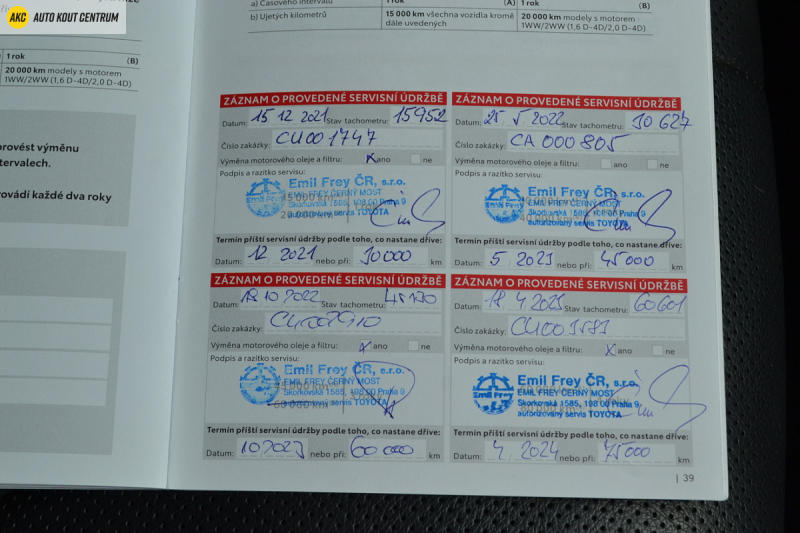 AKC AUTO KOUT CENTRUM
1 rok
(B)
20 000 km modely s motorem
1WW/2WW (1,6 D-4D/2,0 D-4D)
provést výměnu
tervalech.
rovádí každé dva roky
a) Časového intervalu
1 rok
(A)
1 rok
(B)
b) Ujetých kilometrů
15 000 km všechna vozidla kromě
dále uvedených
20 000 km modely s motorem
1WW/2WW (1,6 D-4D/2,0 D-4D)
ZÁZNAM O PROVEDENÉ SERVISNÍ ÚDRŽBĚ
Datum: 15 12 2021 Stav tachometru: 15952
Číslo zakázky: CU001747
Výměna motorového oleje a filtru: x ano ne
Podpis a razítko servisu:
Emil Frey ČR, s.r.o.
EMIL FREY ČERNÝ MOST
Skorkovská 1585, 198 00 Praha 9
autorizovaný servis TOYOTA
Termín příští servisní údržby podle toho, co nastane dříve:
Datum: 12 2021 nebo při: 30000 km
ZÁZNAM O PROVEDENÉ SERVISNÍ ÚDRŽBĚ
Datum: 25 5 2022 Stav tachometru: 30627
Číslo zakázky: CA 000805
Výměna motorového oleje a filtru: ano ne
Podpis a razítko servisu:
Emil Frey ČR, s.r.o.
EMIL FREY ČERNÝ MOST
Skorkovská 1585, 198 00 Praha 9
autorizovaný servis TOYOTA
Termín příští servisní údržby podle toho, co nastane dříve:
Datum: 5 2023 nebo při: 45000 km
ZÁZNAM O PROVEDENÉ SERVISNÍ ÚDRŽBĚ
Datum: 10 2022 Stav tachometru:
Číslo zakázky:
Výměna motorového oleje a filtru: x ano ne
Podpis a razítko servisu:
Emil Frey ČR, s.r.o.
EMIL FREY ČERNÝ MOST
Skorkovská 1585, 198 00 Praha 9
autorizovaný servis TOYOTA
60 000 km
Termín příští servisní údržby podle toho, co nastane dříve:
Datum: 10 2023 nebo při: 60000 km
ZÁZNAM O PROVEDENÉ SERVISNÍ ÚDRŽBĚ
Datum: 18 4 2023 Stav tachometru: 60601
Číslo zakázky:
Výměna motorového oleje a filtru: x ano ne
Podpis a razítko servisu:
Emil Frey ČR, s.r.o.
EMIL FREY ČERNÝ MOST
Skorkovská 1585, 198 00 Praha 9
autorizovaný servis TOYOTA
Termín příští servisní údržby podle toho, co nastane dříve:
Datum: 4 2024 nebo při: 75000 km
| 39